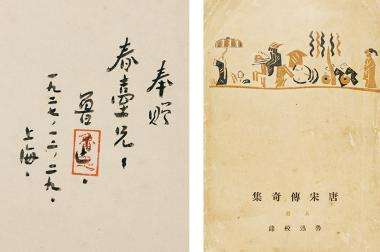 奉贈
春臺兄、
魯迅、
一九二七、一二、二九、
上海、
魯迅
唐宋傳奇集
魯迅校錄